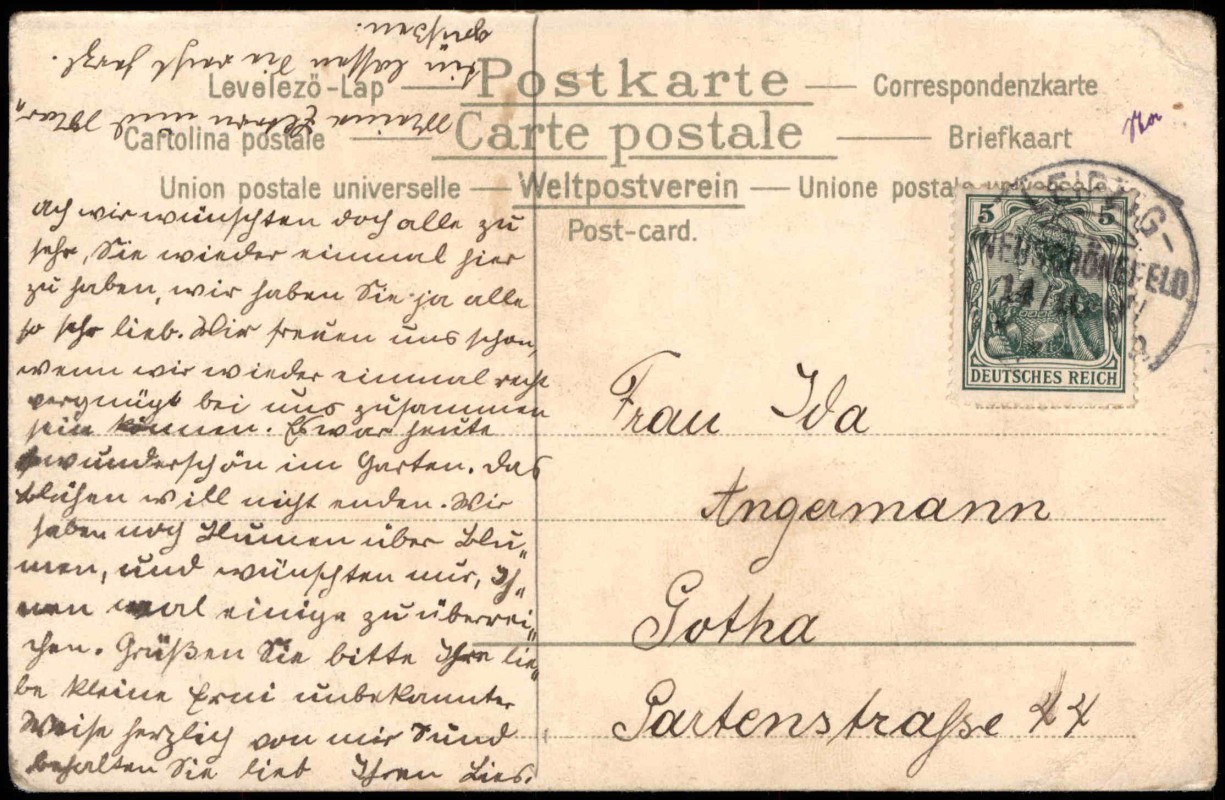 Postkarte
Levelező-Lap — Correspondenzkarte
Carte postale
Cartolina postale — Briefkaart
Union postale universelle — Weltpostverein — Unione postale universale
Post-card.
LEIPZIG-
NEUSCHÖNEFELD
5 5
DEUTSCHES REICH
ach wir wünschten doch alle zu
sehr, Sie wieder einmal hier
zu haben, wir haben Sie ja alle
so sehr lieb. Wir freuen uns schon,
wenn wir wieder einmal recht
vergnügt bei uns zusammen
sein können. Es war heute
wunderschön im Garten. Das
Blühen will nicht enden. Wir
haben noch Blumen über Blu„
men, und wünschten nur, Ih„
nen mal einige zu überrei„
chen. Grüßen Sie bitte Ihre lie„
be kleine Erni unbekannter
Weise herzlich von mir und
behalten Sie lieb Ihren Lies.
Meine Eltern und
lassen Sie recht herzl.
grüßen.
Frau Ida
Angermann
Gotha
Gartenstraße 44